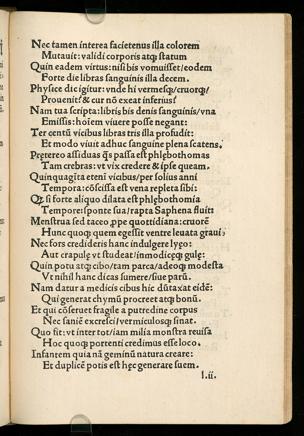 Nec tamen interea facietenus illa colorem
Mutauit: validi corporis atq; statum
Quin eadem virtus: nisi bis vomuisset/eodem
Forte die libras sanguinis illa decem.
Physice dic igitur: vnde hi vermesq;/cruorq;/
Prouenit? & cur nō exeat inferius?
Nam tua scripta: libris bis denis sanguinis/vna
Emissis: hoīem viuere posse negant:
Ter centū vicibus libras tris illa profudit:
Et modo viuit adhuc sanguine plena scatens.
Pręterea assiduas q̄s passa est phlębothomas
Tam crebras: vt vix credere & ipse queam.
Quinquagīta etenī vicibus/per solius anni
Tempora: cōscissa est vena repleta sibi:
Qȝ si forte aliquo dilata est phlębothomia
Tempore: sponte sua/rapta Saphena fluit:
Menstrua sed taceo. ppe quottidiana: cruorē
Hunc quoq; quem egessit ventre leuata graui;
Nec fors credideris hanc indulgere lyęo:
Aut crapulę vt studeat/inmodicęq; gulę:
Quin potu atq; cibo/tam parca/adeoq; modesta
Vt nihil hanc dicas sumere/siue parū.
Nam datur a medicis cibus hic dūtaxat eidē:
Qui generat chymū procreet atq; bonū.
Et qui cōseruet fragile a putredine corpus
Nec saniē excrescī/vermiculosq; sinat.
Quo fit: vt inter tot/iam milia monstra reuisa
Hoc quoq; portenti credimus esse loco.
Infantem quia nā geminū natura creare:
Et duplicē potis est hęc generare suem.
l.ii.